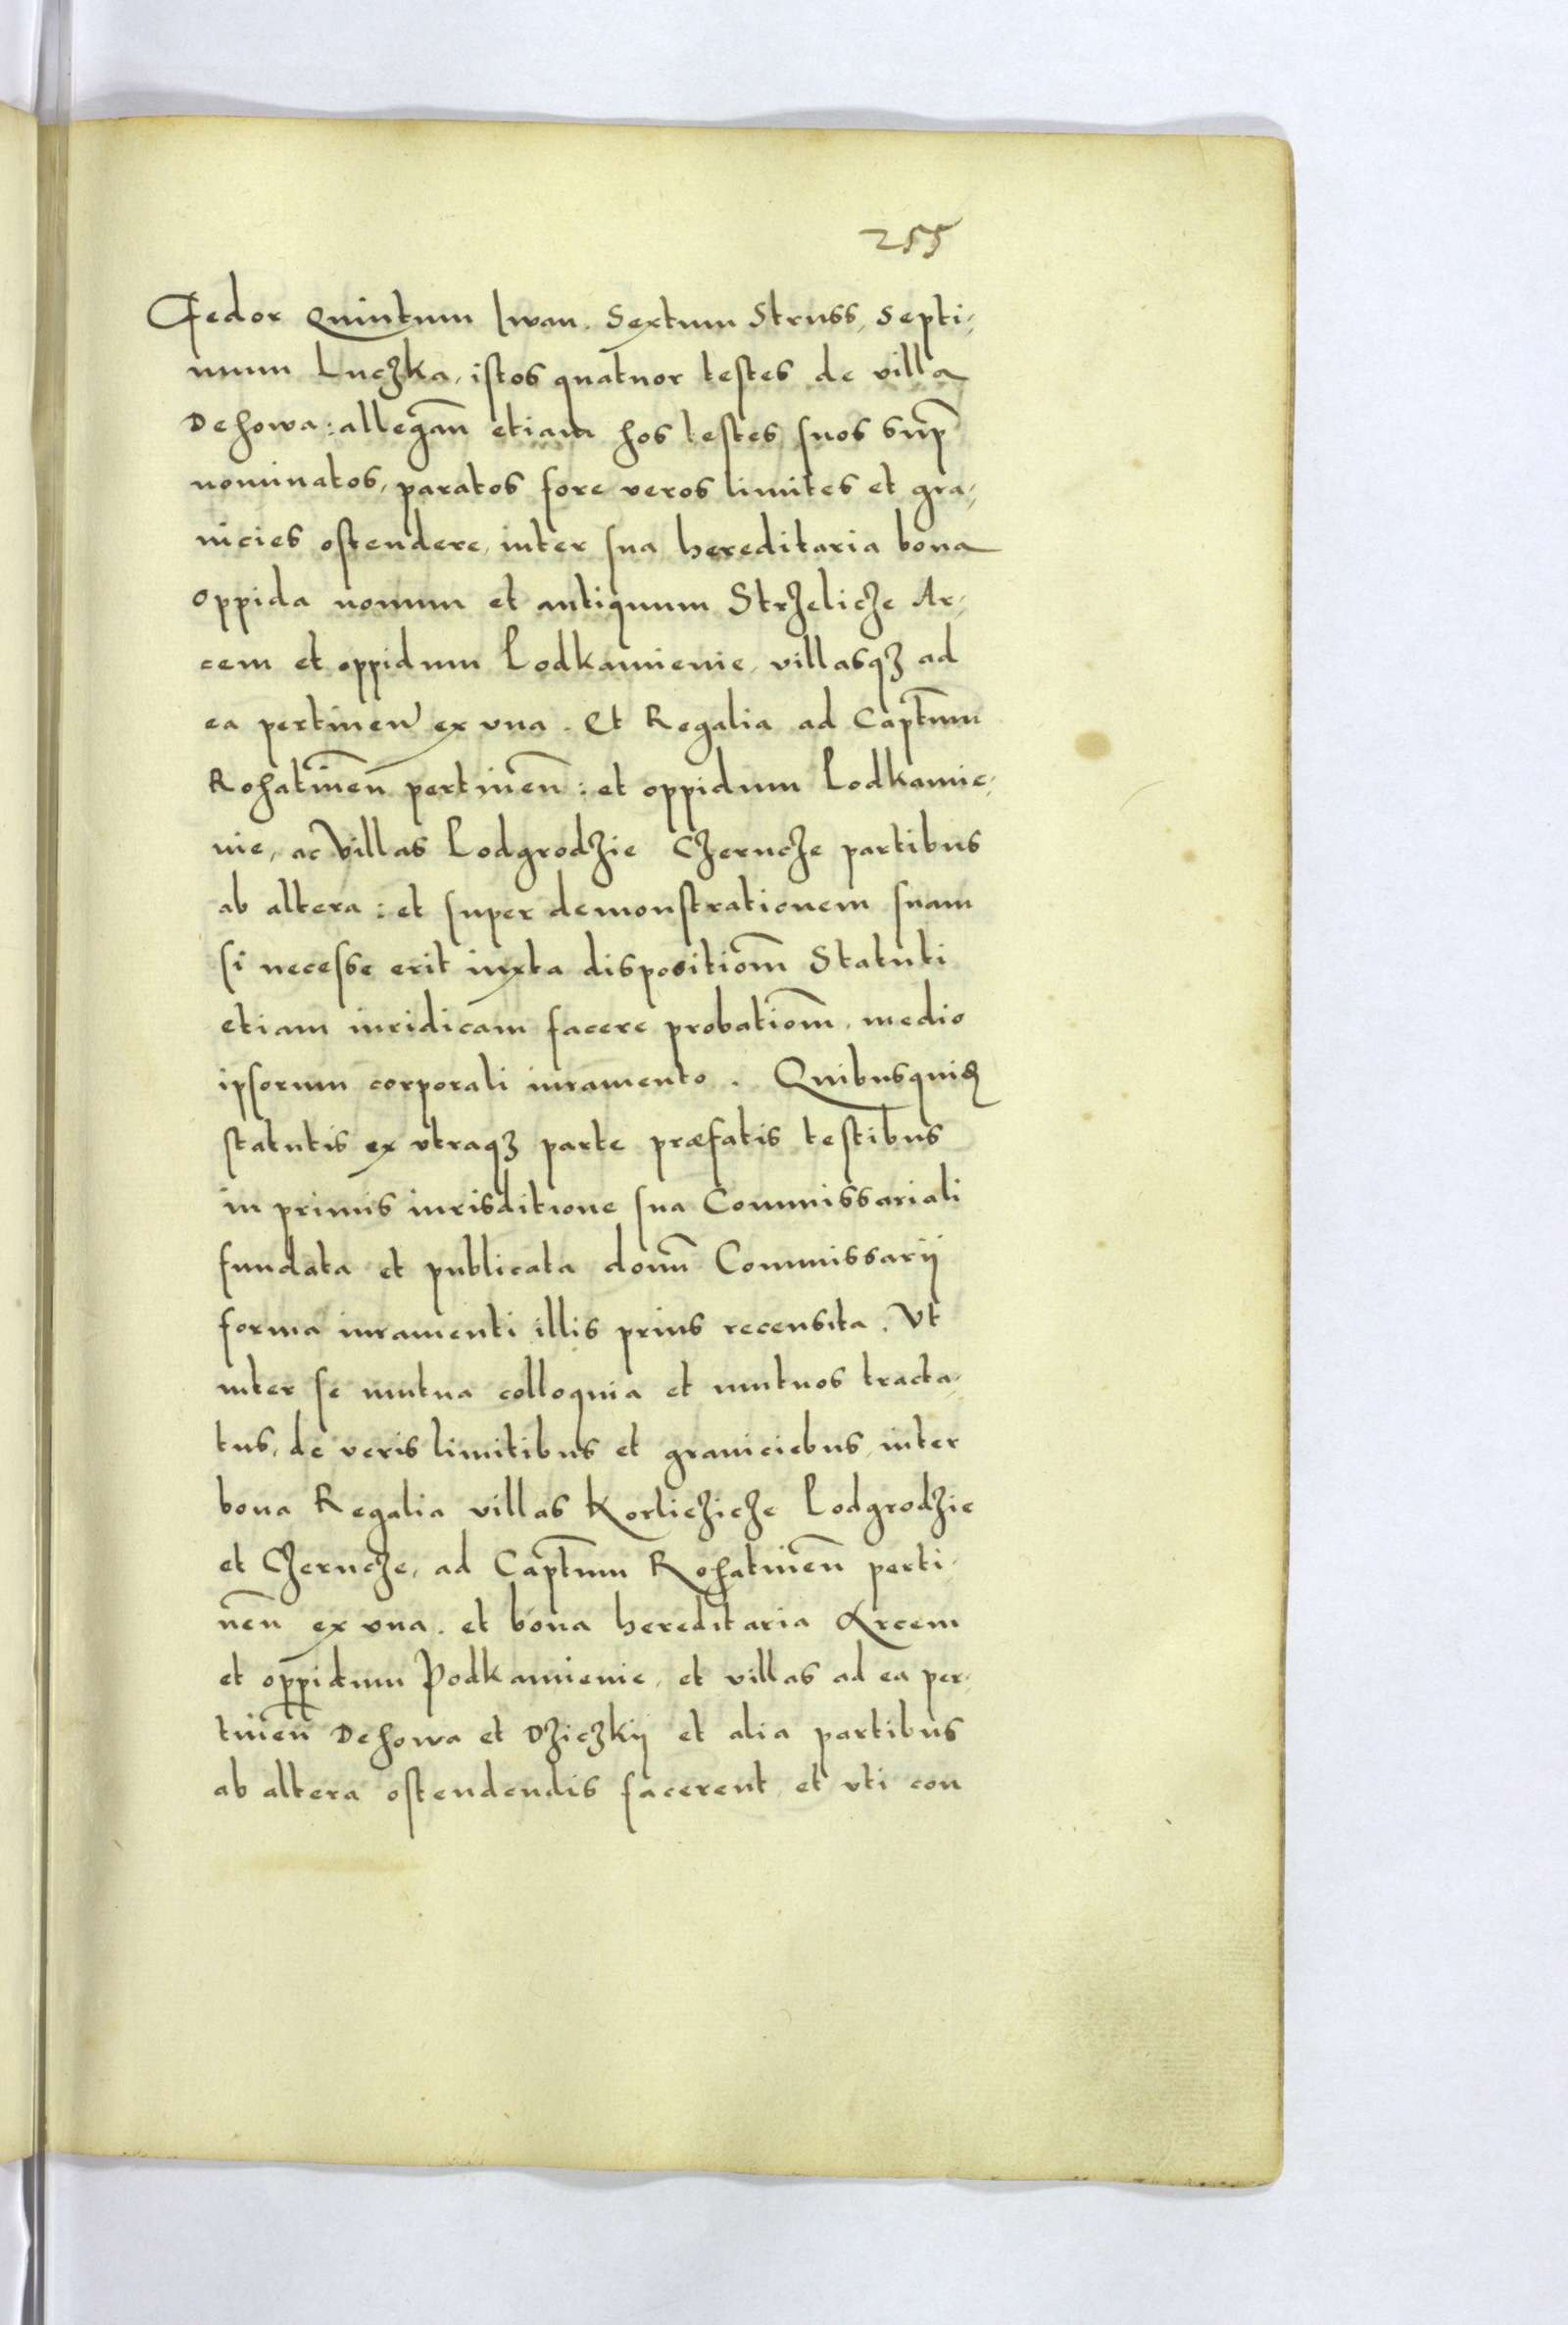 255
Fedor Quintum Iwan. Sextum Struss, Septi-
mum Luczka, istos quatuor testes de villa
Dehowa: allegan̄ etiam hos testes suos sup̄
nominatos, paratos fore veros limites et gra-
nicies ostendere, inter sua hereditaria bona
oppida nouum et antiquum Strzelicze Ar-
cem et oppidum Podkamienie, villasqʒ ad
ea pertinen̄ ex vna. Et Regalia ad Capt̄um
Rohatinen̄ pertinen̄: et oppidum Podkamie-
nie, ac villas Podgrodzie Czerucze partibus
ab altera: et super demonstrationem suam
si necesse erit iuxta dispositiom̄ Statuti
etiam iuridicam facere probatiom̄, medio
ipsorum corporali iuramento. Quibusquiꝫ
statutis ex vtraqʒ parte præfatis testibus
in primis iurisditione sua Commissariali
fundata et publicata domn̄ Commissarij
forma iuramenti illis prius recensita. Vt
inter se mutua colloquia et mutuos tracta-
tus, de veris limitibus et graniciebus, inter
bona Regalia villas Korliczicze Podgrodzie
et Czerucze, ad Capt̄um Rohatinen̄ perti-
nen̄ ex vna. et bona hereditaria Arcem
et oppidum Podkamienie, et villas ad ea per-
tinen̄ Dehowa et Dziczkij et alia partibus
ab altera ostendendis facerent, et vti con